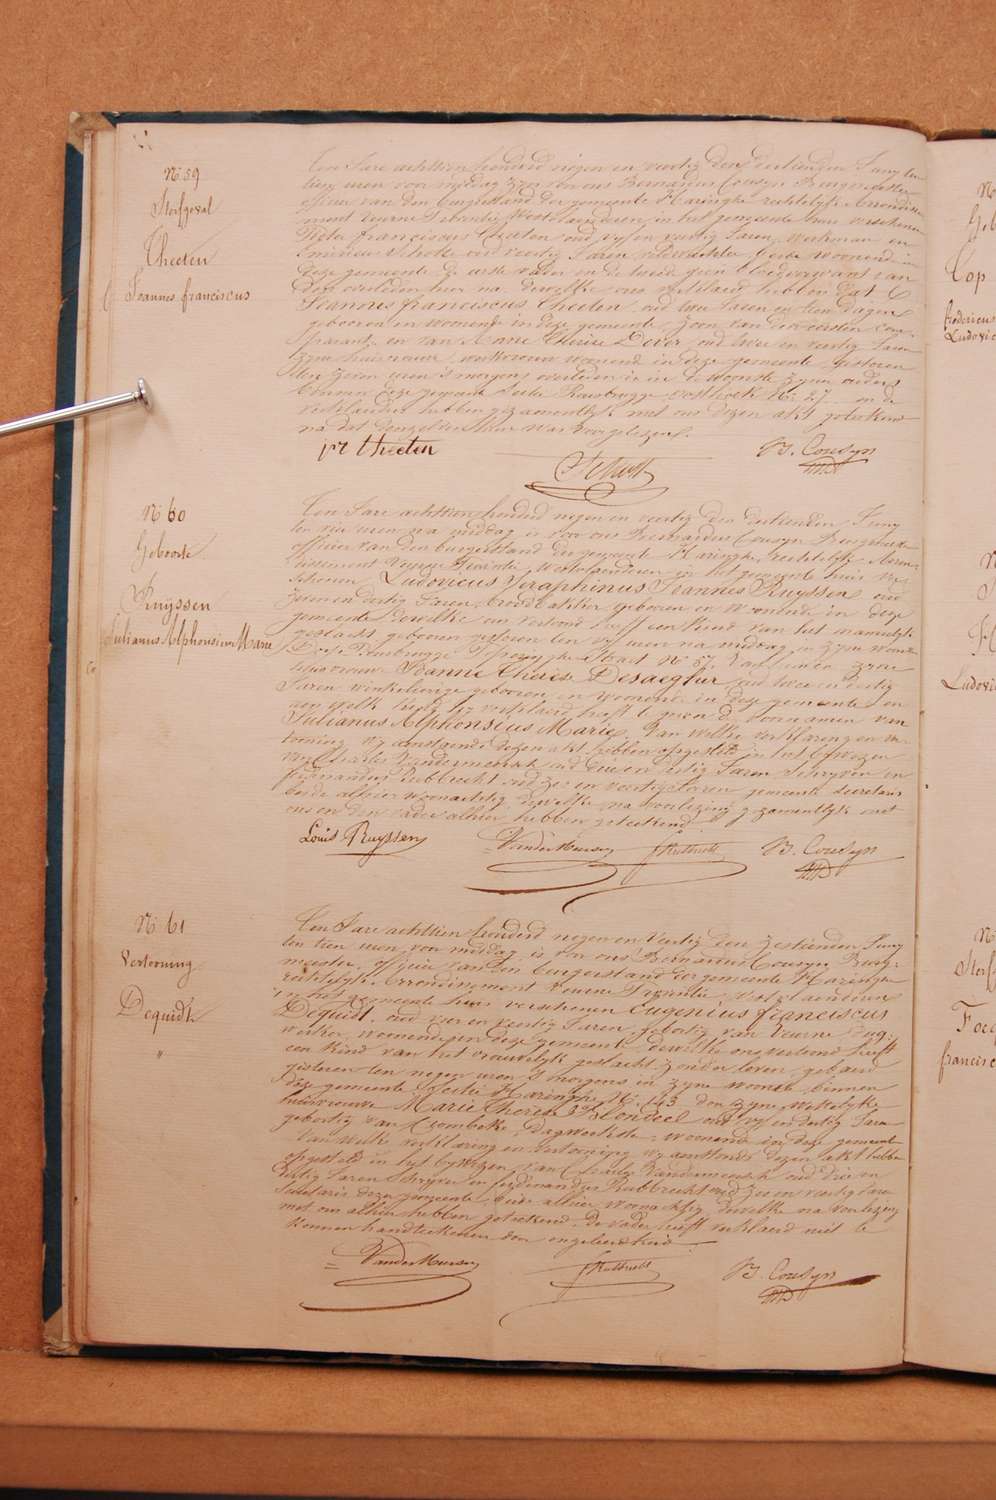 N 59
Sterfgeval
Theeten
Joannes franciscus
Ten Jare achttien honderd negen en veertig den dertienden Juny ten
tien uren voor middag zyn voor ons Bernardus Cousyn Burgmeester
officier van den burgerstand der gemeente Haringhe rechtelyk Arrondisse
ment Veurne Provintie Westvlaenderen in het gemeente huis verschenen
Pieter franciscus Theeten oud vyf en veertig Jaren, werkman en
oud veertig Jaren veldwachter beide woonende in
deze gemeente de eerste vader en de tweede geen bloedverwant van
den overleden hier na dewelke ons verklaerd hebben dat
Joannes franciscus Theeten oud twee Jaren en tien dagen
geboren en woonende in deze gemeente, zoon van den eersten com
parant en van Marie Therese Dever, oud twee en veertig Jaren
zyne huisvrouw, werkvrouw woonend in deze gemeente, gisteren
ten zeven uren 's morgens overleden is in de woonste zyner ouders
binnen deze gemeente sectie Rousbrugge oosthoek N. 27 en de
verklaarders hebben gezamentlyk met ons dezen akt geteekend
na dat denzelven hun was voorgelezen.
pr Theeten
B. Cousyn
N 60
Geboorte
Ruyssen
Julianus Alphonsius Marie
Ten Jare achttien honderd negen en veertig den dertienden Juny
ten vier uren na middag is voor ons Bernardus Cousyn Burgmeester
officier van den burgerstand der gemeente Haringhe, rechtelyk Arron-
dissement Veurne Provintie Westvlaenderen in het gemeente huis ver-
schenen Ludovicus Seraphinus Joannes Ruyssen oud
zeven en dertig Jaren, broodbakker geboren en woonende in deze
gemeente Dewelke ons vertoond heeft een kind van het mannelyk
geslacht geboren gisteren ten vyf uren na middag in zyne woonst
Sectie Rousbrugge Poperinghestraet N. 87, van hem en zyne
huisvrouwe Joanne Therese Desaegher, oud twee en dertig
Jaren winkelierige geboren en woonende in deze gemeente en
aen welk kind hy verklaerd heeft te geven de voornamen van
Julianus Alphonsius Marie. Van welke verklaring en ver-
tooning wy aenstonds dezen akt hebben opgesteld in het bywezen
van Charles Vandermeersch oud drie en dertig Jaren Schryver en
ferdinandus Rubbrecht oud zes en veertig Jaren gemeente secretaris
beide alhier woonachtig, dewelke na voorlezing gezamentlyk met
ons en den vader alhier hebben geteekend
Louis Ruyssen
VanderMeersch
f Rubbrecht
B. Cousyn
N 61
Vertooning
Dequidt
"
Ten Jare achttien honderd negen en veertig den zestienden Juny
ten tien uren voor middag, is voor ons Bernardus Cousyn Burg-
meester, officier van den burgerstand der gemeente Haringhe
rechtelyk Arrondissement Veurne Provintie Westvlaenderen
in het gemeente huis verschenen Eugenius franciscus
Dequidt, oud vier en veertig Jaren, geboortig van Veurne, dag-
werker, woonende in deze gemeente, dewelke ons vertoond heeft
een kind van het vrouwelyk geslacht zonder leven, gebaerd
gisteren ten negen uren 's morgens in zyne woonste binnen
deze gemeente sectie Haringhe N. 143 door zyne wettelyke
huisvrouwe Marie Therese Blondeel oud vyf en dertig Jaren
geboortig van Crombeke, Dagwerkste, woonende in deze gemeente
Van welke verklaring en vertooning wy aenstonds dezen akt hebben
opgesteld in het bywezen van Charles Vandermeersch oud drie en
dertig Jaren Schryver en ferdinandus Rubbrecht oud zes en veertig Jaren
Secretaris dezer gemeente, beide alhier woonachtig, dewelke na voorlezing
met ons alhier hebben geteekend. De vader heeft verklaerd niet te
kunnen handteekenen door ongeleerdheid.
VanderMeersch
f Rubbrecht
B. Cousyn
N
Geb
Cop
fredericus
Ludovic
N
Ludovi
N
Sterf
Foc
francisc